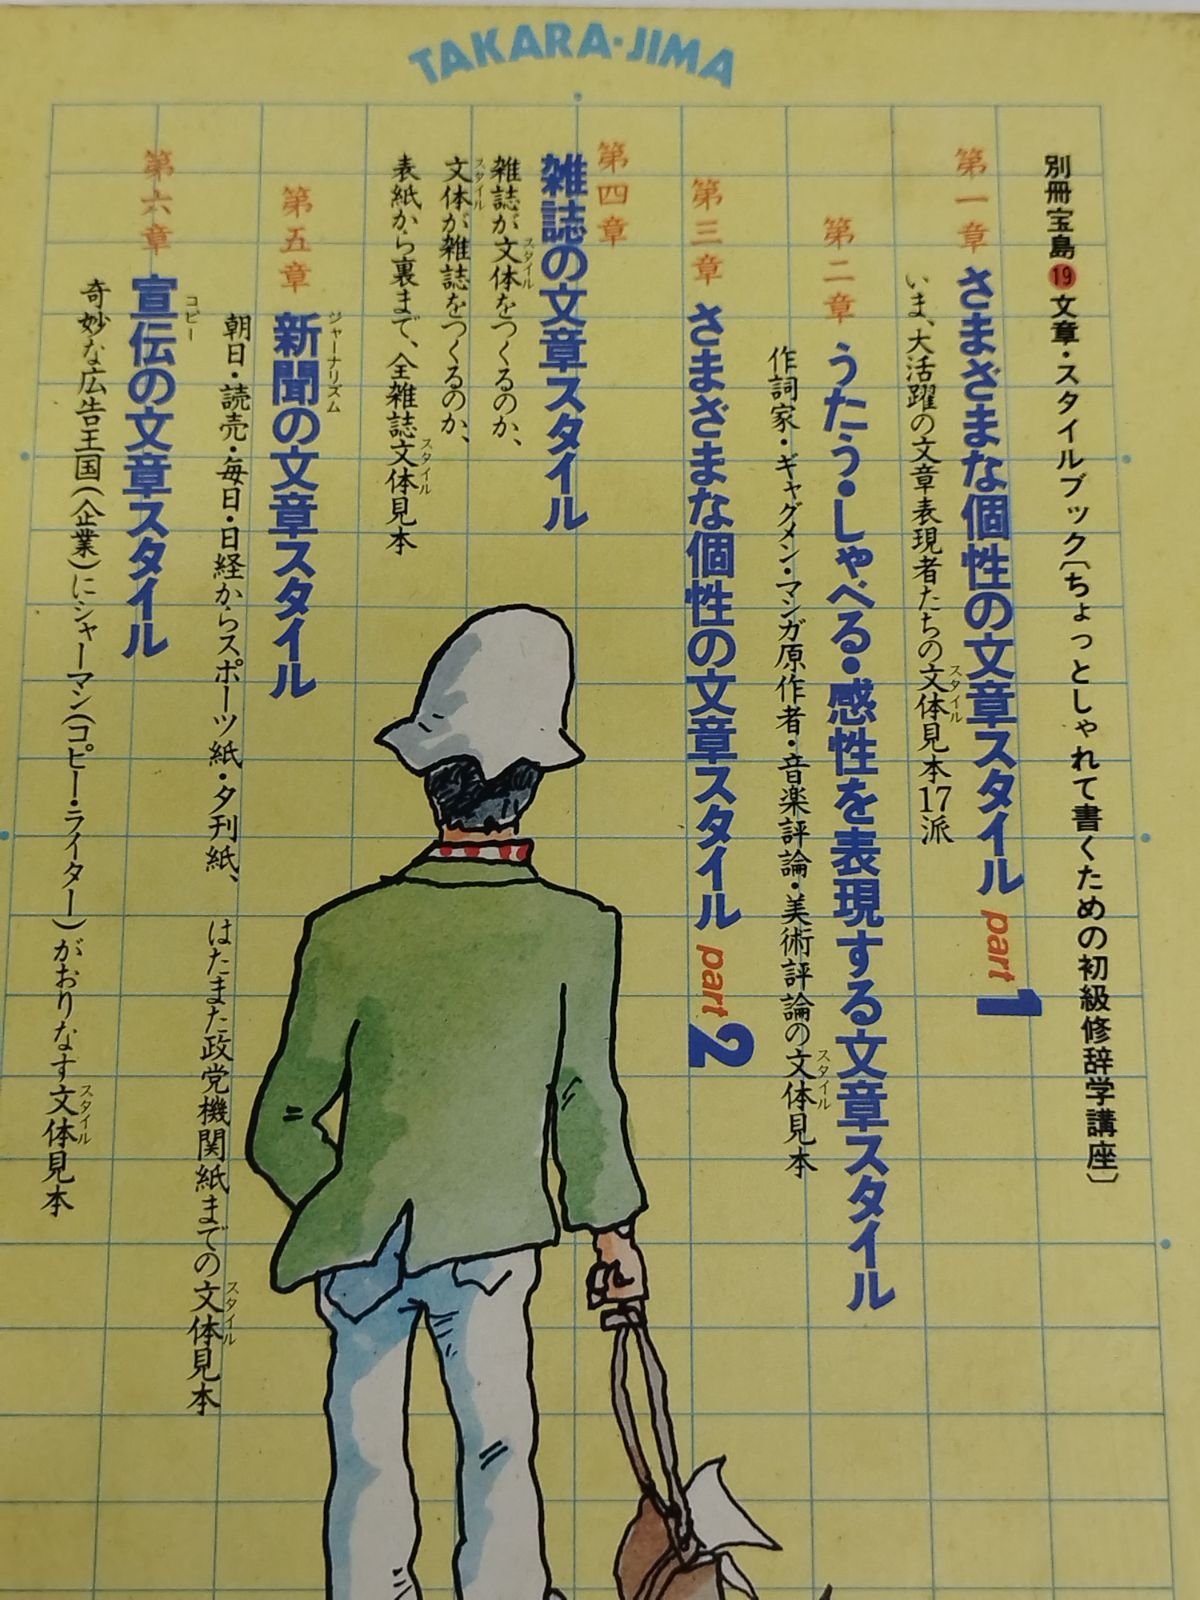 TAKARA・JIMA
別冊宝島⑲文章・スタイルブック〔ちょっとしゃれて書くための初級修辞学講座〕
第一章 さまざまな個性の文章スタイル part 1
いま、大活躍の文章表現者たちの文体見本17派
スタイル
第二章 うたう・しゃべる・感性を表現する文章スタイル
作詞家・ギャグメン・マンガ原作者・音楽評論・美術評論の文体見本
スタイル
第三章 さまざまな個性の文章スタイル part 2
第四章
雑誌の文章スタイル
雑誌が文体をつくるのか、
スタイル
文体が雑誌をつくるのか、
スタイル
表紙から裏まで、全雑誌文体見本
スタイル
第五章 新聞の文章スタイル
ジャーナリズム
朝日・読売・毎日・日経からスポーツ紙・夕刊紙、
はたまた政党機関紙までの文体見本
スタイル
第六章 宣伝の文章スタイル
コピー
奇妙な広告王国(企業)にシャーマン(コピー・ライター)がおりなす文体見本
スタイル